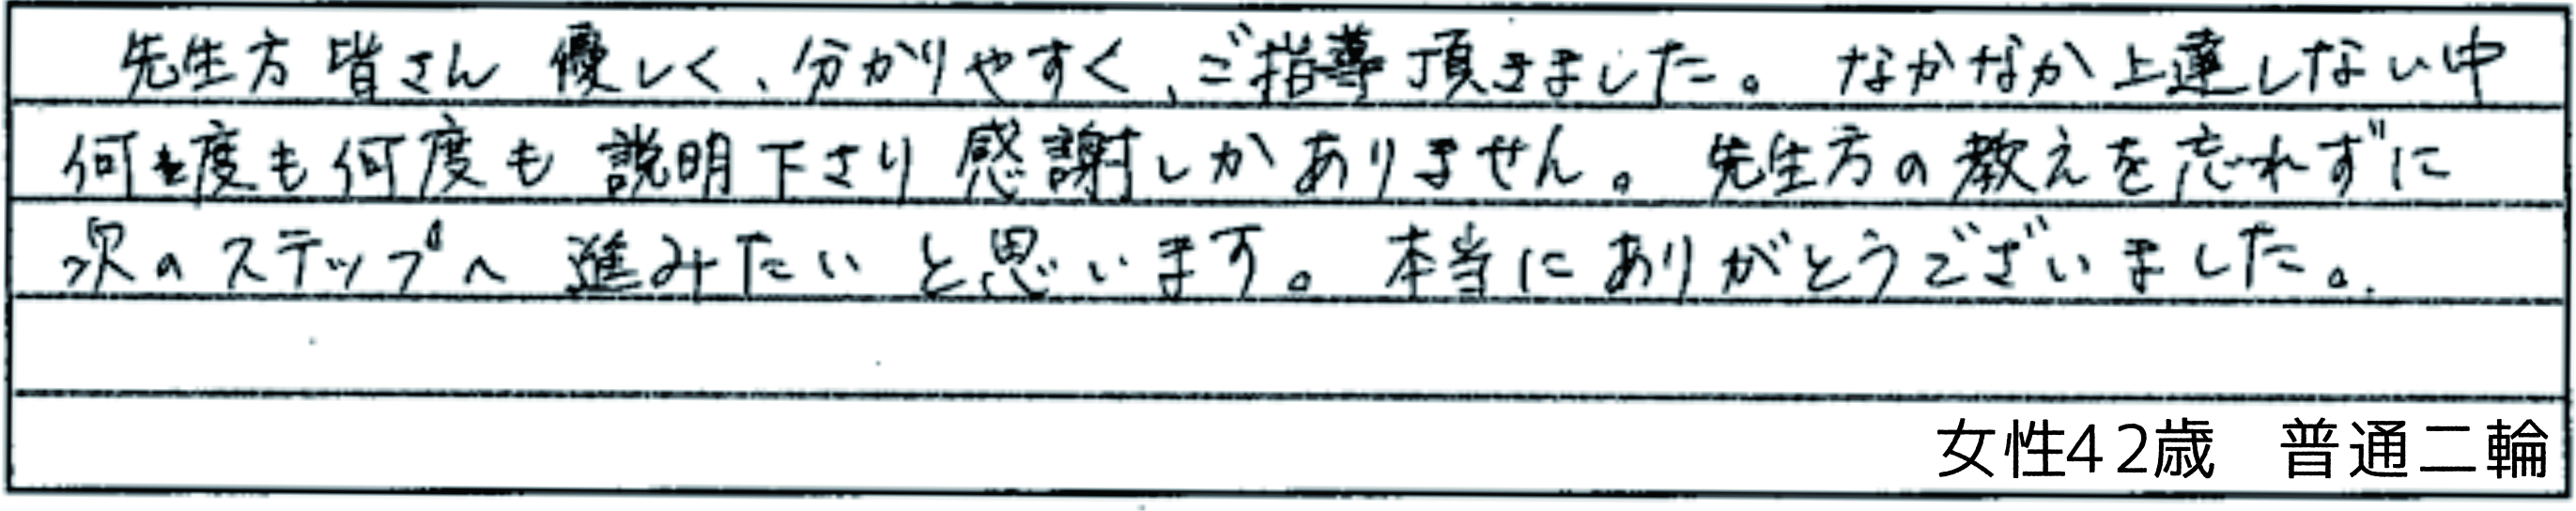 先生方皆さん 優しく、分かりやすく、ご指導頂きました。 なかなか上達しない中
何度も何度も 説明下さり 感謝しかありません。 先生方の教えを忘れずに
次のステップへ 進みたいと思います。 本当にありがとうございました。
女性42歳　普通二輪